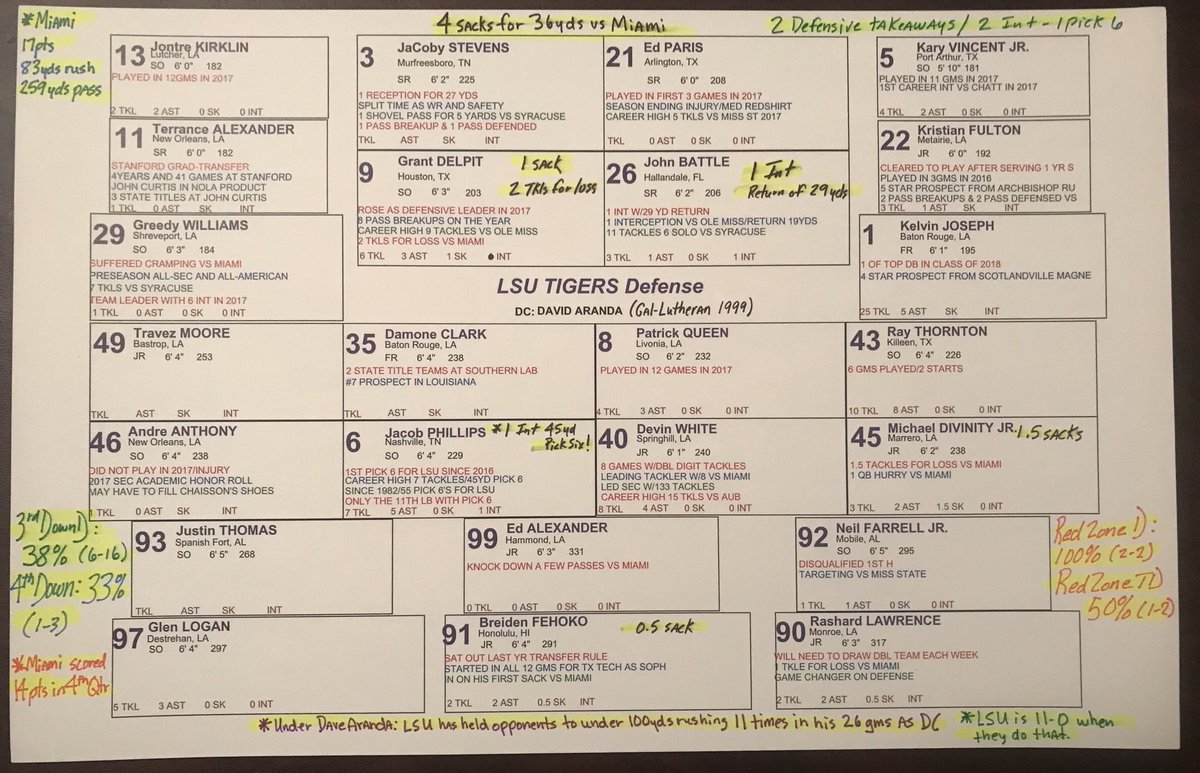 *Miami
17pts
83yds rush
259yds pass
4 sacks for 36yds vs Miami
2 Defensive takeaways/ 2 Int - 1 pick 6
13 Jontre KIRKLIN
Lutcher, LA
SO 6' 0" 182
PLAYED IN 12GMS IN 2017
2 TKL 2 AST 0 SK 0 INT
3 JaCoby STEVENS
Murfreesboro, TN
SR 6' 2" 225
1 RECEPTION FOR 27 YDS
SPLIT TIME AS WR AND SAFETY
1 SHOVEL PASS FOR 5 YARDS VS SYRACUSE
1 PASS BREAKUP & 1 PASS DEFENDED
TKL AST SK INT
21 Ed PARIS
Arlington, TX
SR 6' 0" 208
PLAYED IN FIRST 3 GAMES IN 2017
SEASON ENDING INJURY/MED REDSHIRT
CAREER HIGH 5 TKLS VS MISS ST 2017
TKL 0 AST 0 SK 0 INT
5 Kary VINCENT JR.
Port Arthur, TX
SO 5' 10" 181
PLAYED IN 11 GMS IN 2017
1ST CAREER INT VS CHATT IN 2017
4 TKL 2 AST 0 SK 0 INT
11 Terrance ALEXANDER
New Orleans, LA
SR 6' 0" 182
STANFORD GRAD-TRANSFER
4YEARS AND 41 GAMES AT STANFORD
JOHN CURTIS IN NOLA PRODUCT
3 STATE TITLES AT JOHN CURTIS
1 TKL 0 AST SK INT
9 Grant DELPIT
Houston, TX
SO 6' 3" 203
1 sack
2 TKls for loss
ROSE AS DEFENSIVE LEADER IN 2017
8 PASS BREAKUPS ON THE YEAR
CAREER HIGH 9 TACKLES VS OLE MISS
2 TKLS FOR LOSS VS MIAMI
6 TKL 3 AST 1 SK INT
26 John BATTLE
Hallandale, FL
SR 6' 2" 206
1 Int
Return of 29yds
1 INT W/29 YD RETURN
1 INTERCEPTION VS OLE MISS/RETURN 19YDS
11 TACKLES 6 SOLO VS SYRACUSE
3 TKL 1 AST 0 SK 1 INT
22 Kristian FULTON
Metairie, LA
JR 6' 0" 192
CLEARED TO PLAY AFTER SERVING 1 YR S
PLAYED IN 3GMS IN 2016
5 STAR PROSPECT FROM ARCHBISHOP RU
2 PASS BREAKUPS & 2 PASS DEFENSED VS
3 TKL 1 AST SK INT
29 Greedy WILLIAMS
Shreveport, LA
SO 6' 3" 184
SUFFERED CRAMPING VS MIAMI
PRESEASON ALL-SEC AND ALL-AMERICAN
7 TKLS VS SYRACUSE
TEAM LEADER WITH 6 INT IN 2017
1 TKL 0 AST 0 SK 0 INT
LSU TIGERS Defense
DC: DAVID ARANDA (Cal-Lutheran 1999)
1 Kelvin JOSEPH
Baton Rouge, LA
FR 6' 1" 195
1 OF TOP DB IN CLASS OF 2018
4 STAR PROSPECT FROM SCOTLANDVILLE MAGNE
25 TKL 5 AST SK INT
49 Travez MOORE
Bastrop, LA
JR 6' 4" 253
TKL AST SK INT
35 Damone CLARK
Baton Rouge, LA
FR 6' 4" 238
2 STATE TITLE TEAMS AT SOUTHERN LAB
#7 PROSPECT IN LOUISIANA
TKL AST SK INT
8 Patrick QUEEN
Livonia, LA
SO 6' 2" 232
PLAYED IN 12 GAMES IN 2017
4 TKL 3 AST 0 SK 0 INT
43 Ray THORNTON
Killeen, TX
SO 6' 4" 226
6 GMS PLAYED/2 STARTS
10 TKL 8 AST 0 SK 0 INT
46 Andre ANTHONY
New Orleans, LA
SO 6' 4" 238
DID NOT PLAY IN 2017/INJURY
2017 SEC ACADEMIC HONOR ROLL
MAY HAVE TO FILL CHAISSON'S SHOES
1 TKL 0 AST SK INT
6 Jacob PHILLIPS
Nashville, TN
SO 6' 4" 229
*1 Int 45yd
Pick Six!
1ST PICK 6 FOR LSU SINCE 2016
CAREER HIGH 7 TACKLES/45YD PICK 6
SINCE 1982/55 PICK 6'S FOR LSU
ONLY THE 11TH LB WITH PICK 6
7 TKL 5 AST 0 SK 1 INT
40 Devin WHITE
Springhill, LA
JR 6' 1" 240
8 GAMES W/DBL DIGIT TACKLES
LEADING TACKLER W/8 VS MIAMI
LED SEC W/133 TACKLES
CAREER HIGH 15 TKLS VS AUB
8 TKL 4 AST 0 SK 0 INT
45 Michael DIVINITY JR.
Marrero, LA
JR 6' 2" 238
1.5 sacks
1.5 TACKLES FOR LOSS VS MIAMI
1 QB HURRY VS MIAMI
3 TKL 2 AST 1.5 SK 0 INT
3rd Down D:
38% (6-16)
4th Down: 33%
(1-3)
93 Justin THOMAS
Spanish Fort, AL
SO 6' 5" 268
TKL AST SK INT
99 Ed ALEXANDER
Hammond, LA
JR 6' 3" 331
KNOCK DOWN A FEW PASSES VS MIAMI
0 TKL 0 AST 0 SK 0 INT
92 Neil FARRELL JR.
Mobile, AL
SO 6' 5" 295
DISQUALIFIED 1ST H
TARGETING VS MISS STATE
1 TKL 1 AST 0 SK 0 INT
Red Zone D:
100% (2-2)
Red Zone TD
50% (1-2)
*Miami scored
14 pts in 4th Qtr
97 Glen LOGAN
Destrehan, LA
SO 6' 4" 297
5 TKL 3 AST 0 SK 0 INT
91 Breiden FEHOKO
Honolulu, HI
JR 6' 4" 291
0.5 sack
SAT OUT LAST YR TRANSFER RULE
STARTED IN ALL 12 GMS FOR TX TECH AS SOPH
N ON HIS FIRST SACK VS MIAMI
2 TKL 2 AST 0.5 SK INT
90 Rashard LAWRENCE
Monroe, LA
JR 6' 3" 317
WILL NEED TO DRAW DBL TEAM EACH WEEK
1 TKLE FOR LOSS VS MIAMI
GAME CHANGER ON DEFENSE
2 TKL 2 AST 0.5 SK INT
*Under Dave Aranda: LSU has held opponents to under 100yds rushing 11 times in his 26 gms as DC
*LSU is 11-0 when
they do that.